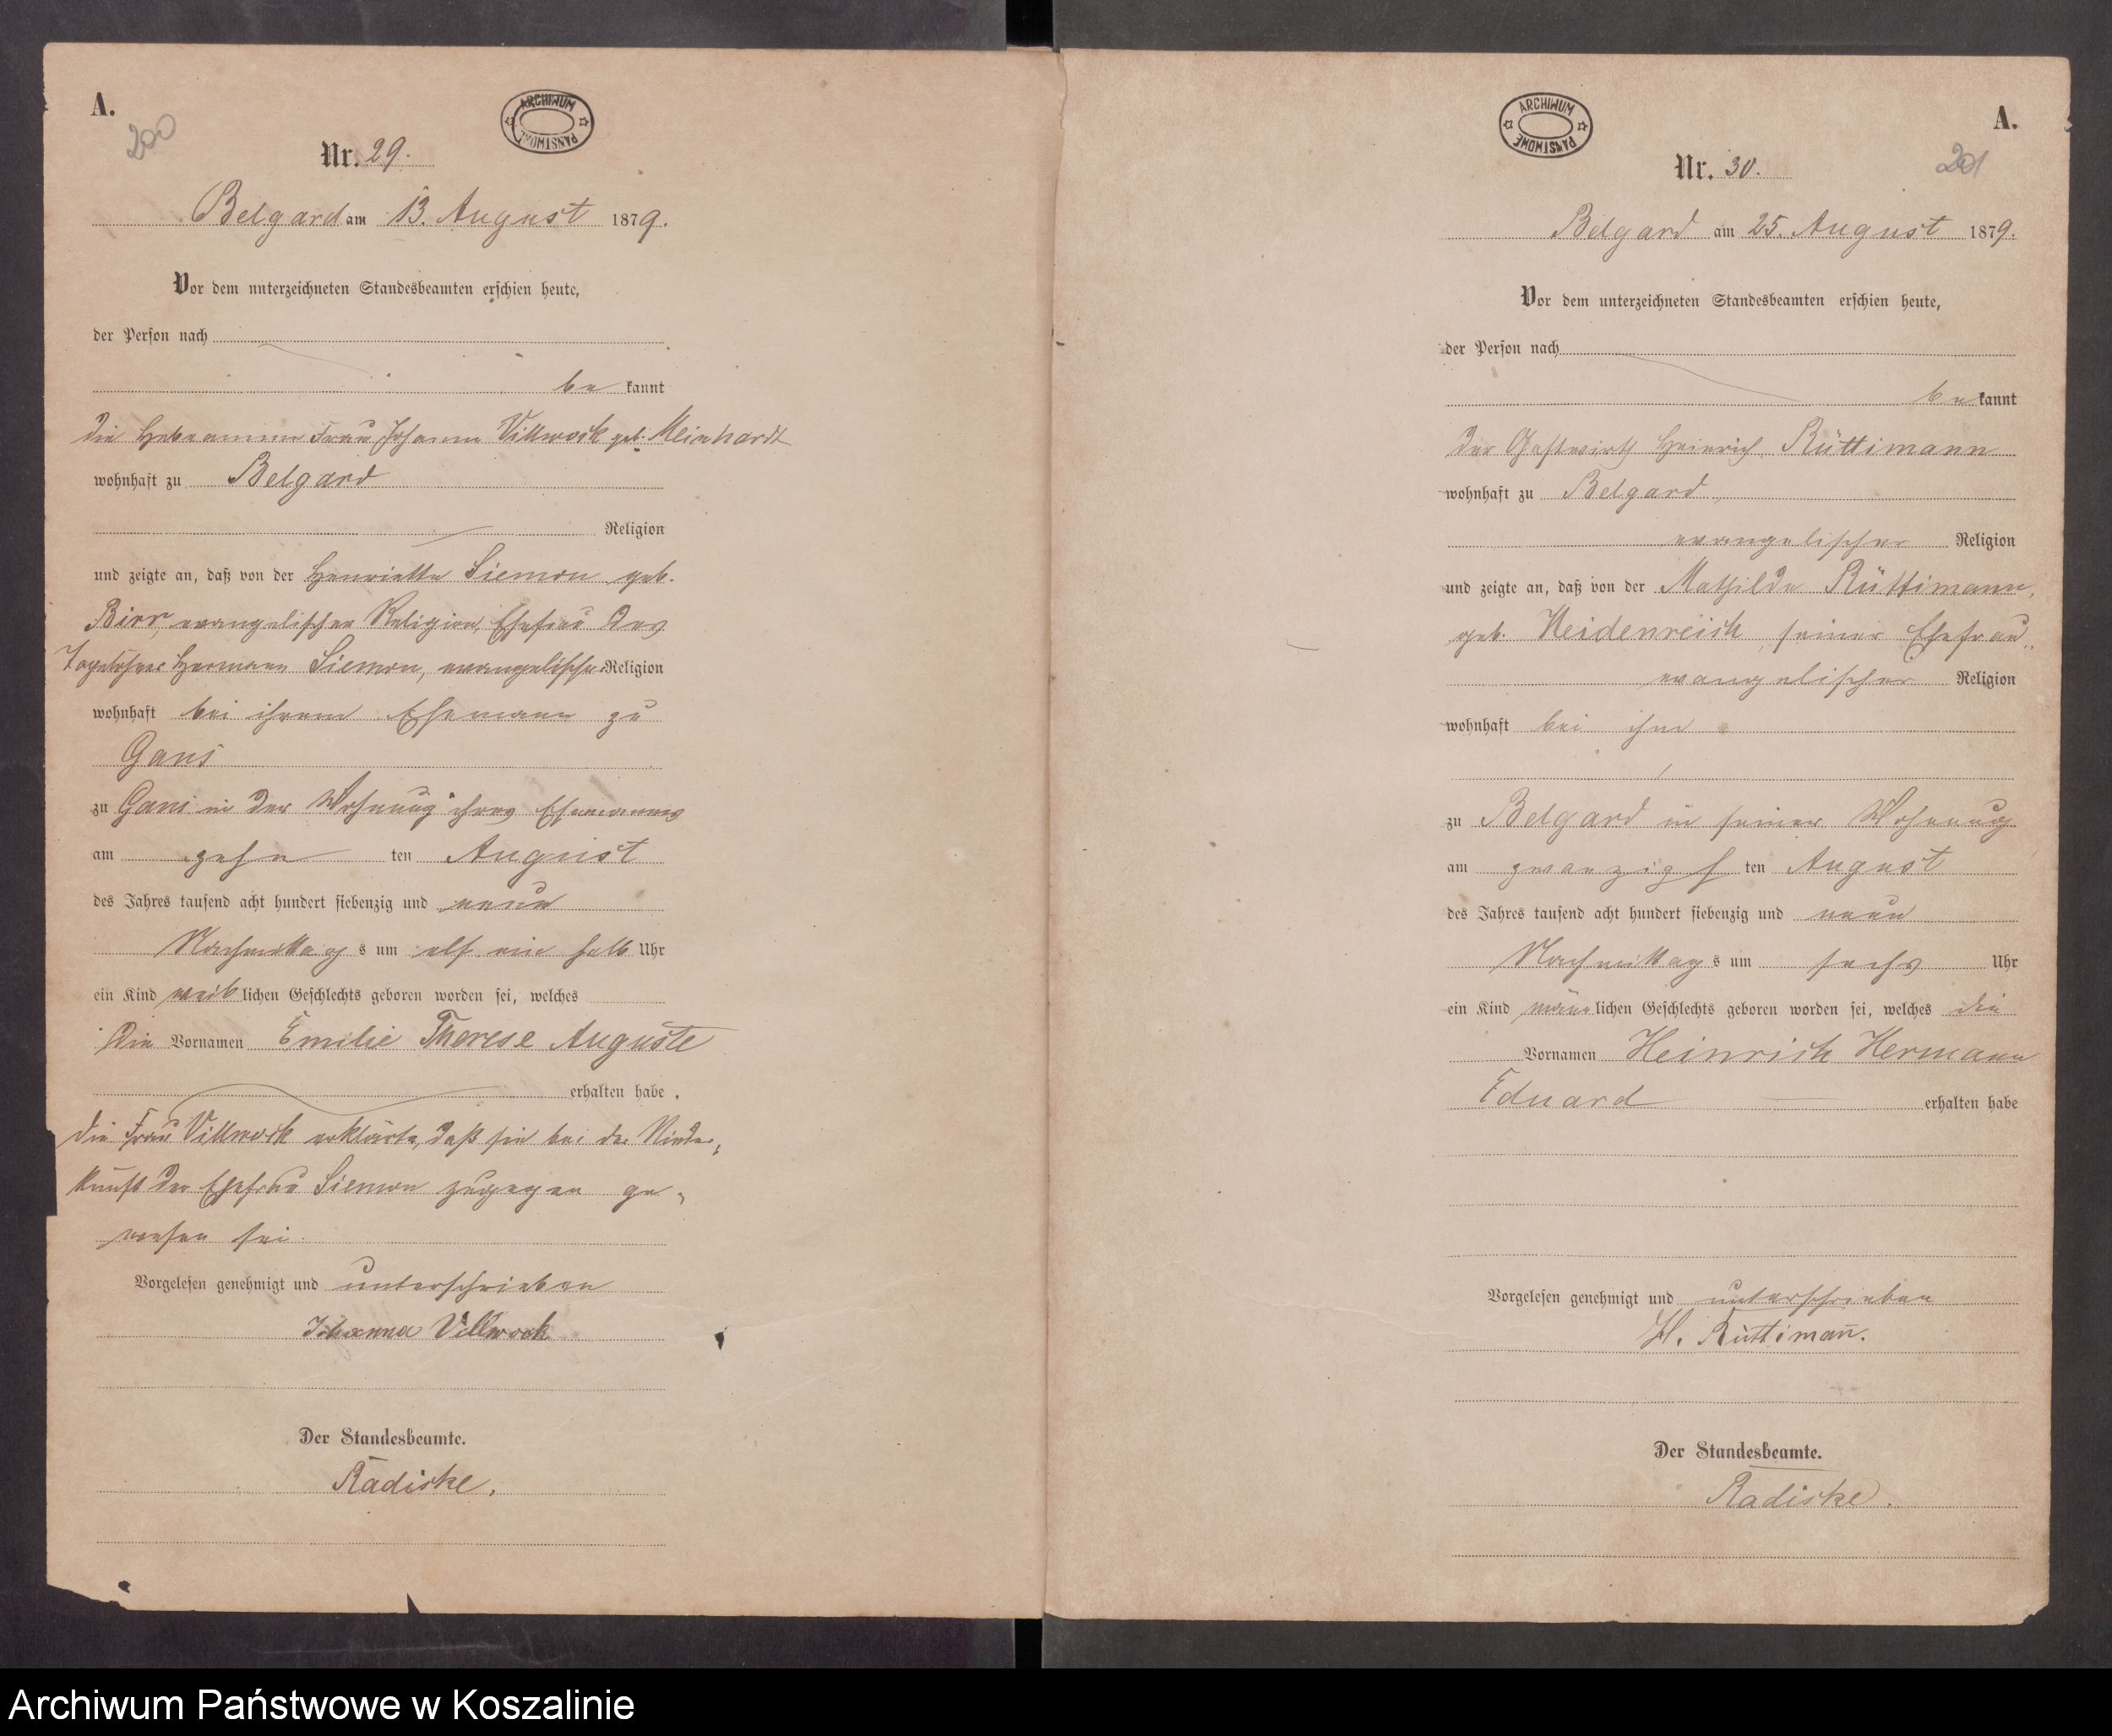 A.
200
ARCHIWUM PAŃSTWOWE
Nr. 29.
Belgard am 13. August 1879.
Vor dem unterzeichneten Standesbeamten erschien heute,
der Person nach
be kannt
die Hebeamme Frau Johanna Villwock geb. Meinhardt
wohnhaft zu Belgard
Religion
und zeigte an, daß von der Henriette Siemon geb.
Birr, evangelischer Religion, Ehefrau des
Tagelöhner Hermann Siemon, evangelischer Religion
wohnhaft bei ihrem Ehemann zu
Gans
zu Gans in der Wohnung ihres Ehemannes
am zehn ten August
des Jahres tausend acht hundert siebenzig und neun
Nachmittag s um elf ein halb Uhr
ein Kind weib lichen Geschlechts geboren worden sei, welches
die Vornamen Emilie Therese Auguste
erhalten habe.
die Frau Villwock erklärte, daß sie bei der Nieder-
kunft der Ehefrau Siemon zugegen ge-
wesen sei.
Vorgelesen genehmigt und unterschrieben
Johanna Villwock
Der Standesbeamte.
Radiske.
A.
201
ARCHIWUM PAŃSTWOWE
Nr. 30.
Belgard am 25. August 1879.
Vor dem unterzeichneten Standesbeamten erschien heute,
der Person nach
be kannt
der Gastwirth Heinrich Rüttimann
wohnhaft zu Belgard,
evangelischer Religion
und zeigte an, daß von der Mathilde Rüttimann,
geb. Heidenreich, seiner Ehefrau,
evangelischer Religion
wohnhaft bei ihm
zu Belgard in seiner Wohnung
am zwanzigs ten August
des Jahres tausend acht hundert siebenzig und neun
Nachmittag s um sechs Uhr
ein Kind männ lichen Geschlechts geboren worden sei, welches die
Vornamen Heinrich Hermann
Eduard erhalten habe
Vorgelesen genehmigt und unterschrieben
H. Rüttimann̄.
Der Standesbeamte.
Radiske.
Archiwum Państwowe w Koszalinie